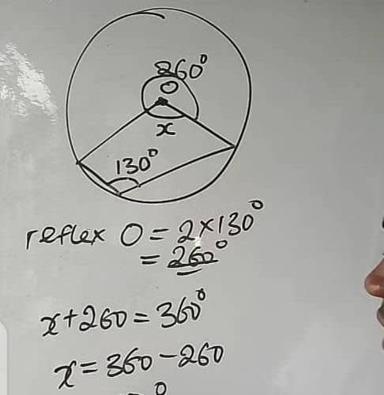 260°
O
x
130°
reflex O = 2×130°
= 260°
x+260 = 360°
x = 360 - 260